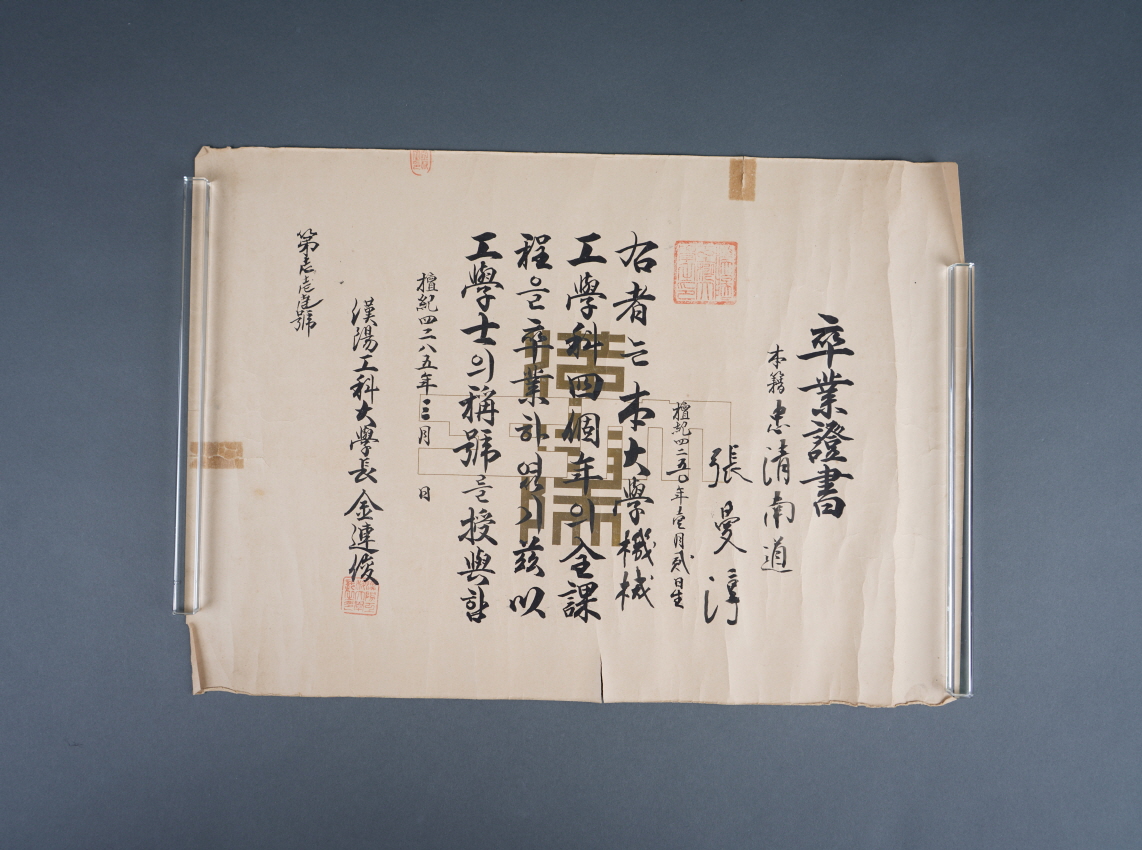 卒業證書
本籍 忠清南道
張曼淳
檀紀四二五〇年壹月貳日生
右者는本大學機械
工學科四個年의全課
程을卒業하였기玆以
工學士의稱號를授與함
檀紀四二八五年三月 日
漢陽工科大學長 金連俊
第 號